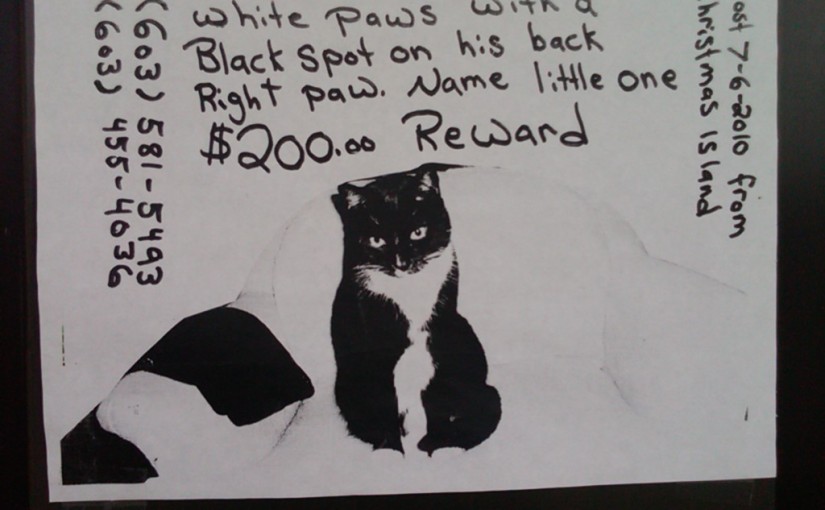 white paws with a
Black spot on his back
Right paw. Name little one
$200.00 Reward
(603) 581-5493
(603) 455-4036
ost 7-6-2010 from
hristmas island